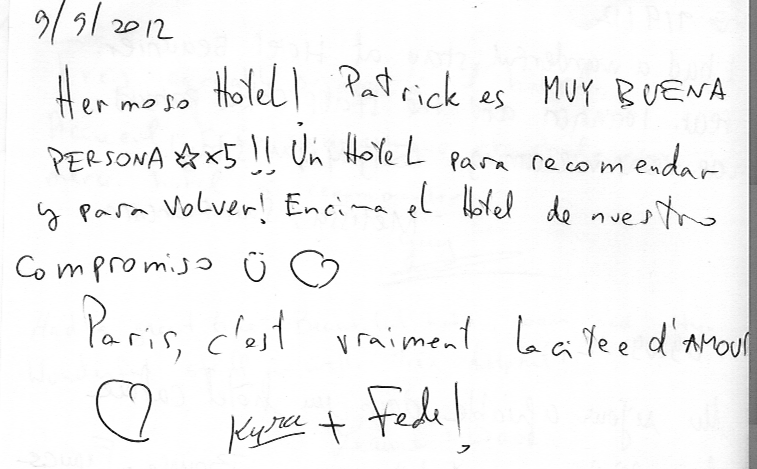 9/9/2012
Hermoso Hotel! Patrick es MUY BUENA
PERSONA ☆x5!! Un Hotel para recomendar
y para volver! Encima el Hotel de nuestro
compromiso ü ♡
Paris, c'est vraiment la citee d'AMOUR
♡ Kyra + Fede!